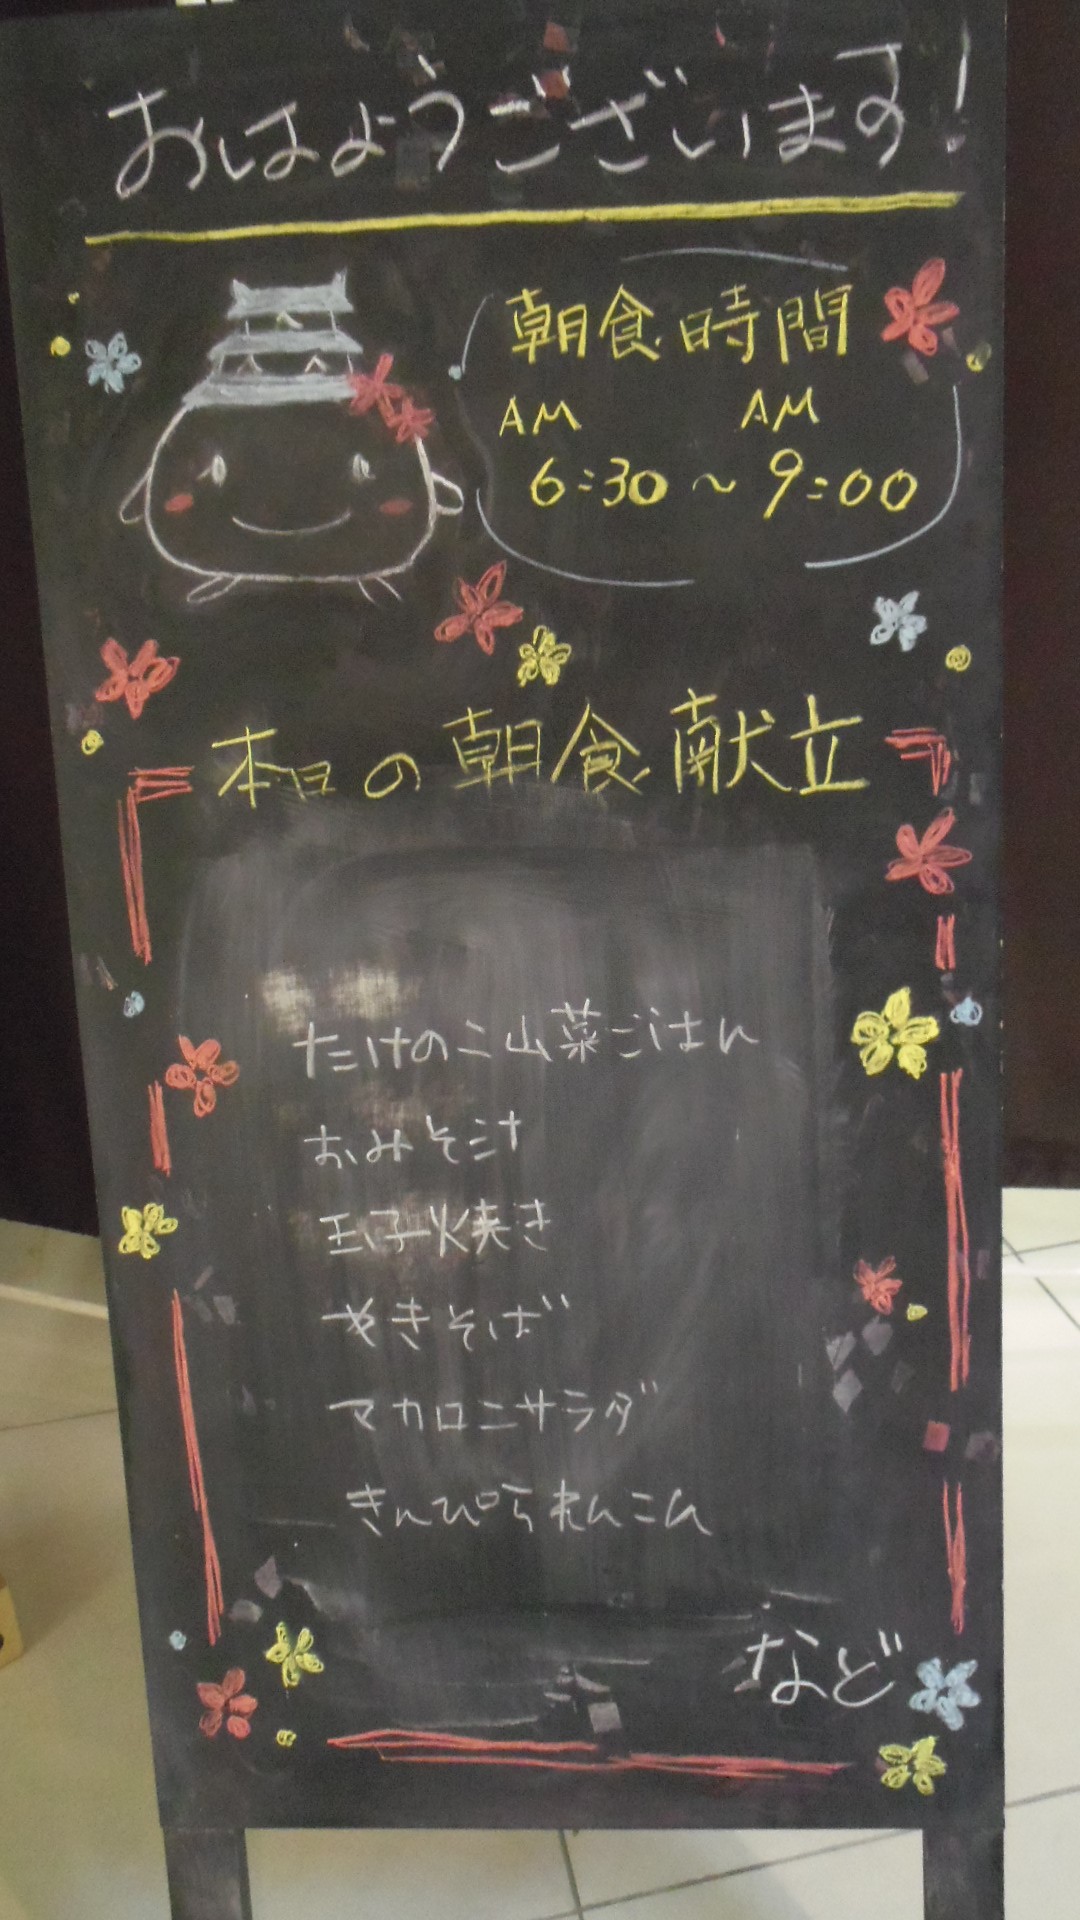 おはようございます!
朝食時間
AM AM
6:30～9:00
本日の朝食献立
たけのこ山菜ごはん
おみそ汁
玉子焼き
やきそば
マカロニサラダ
きんぴられんこん
など